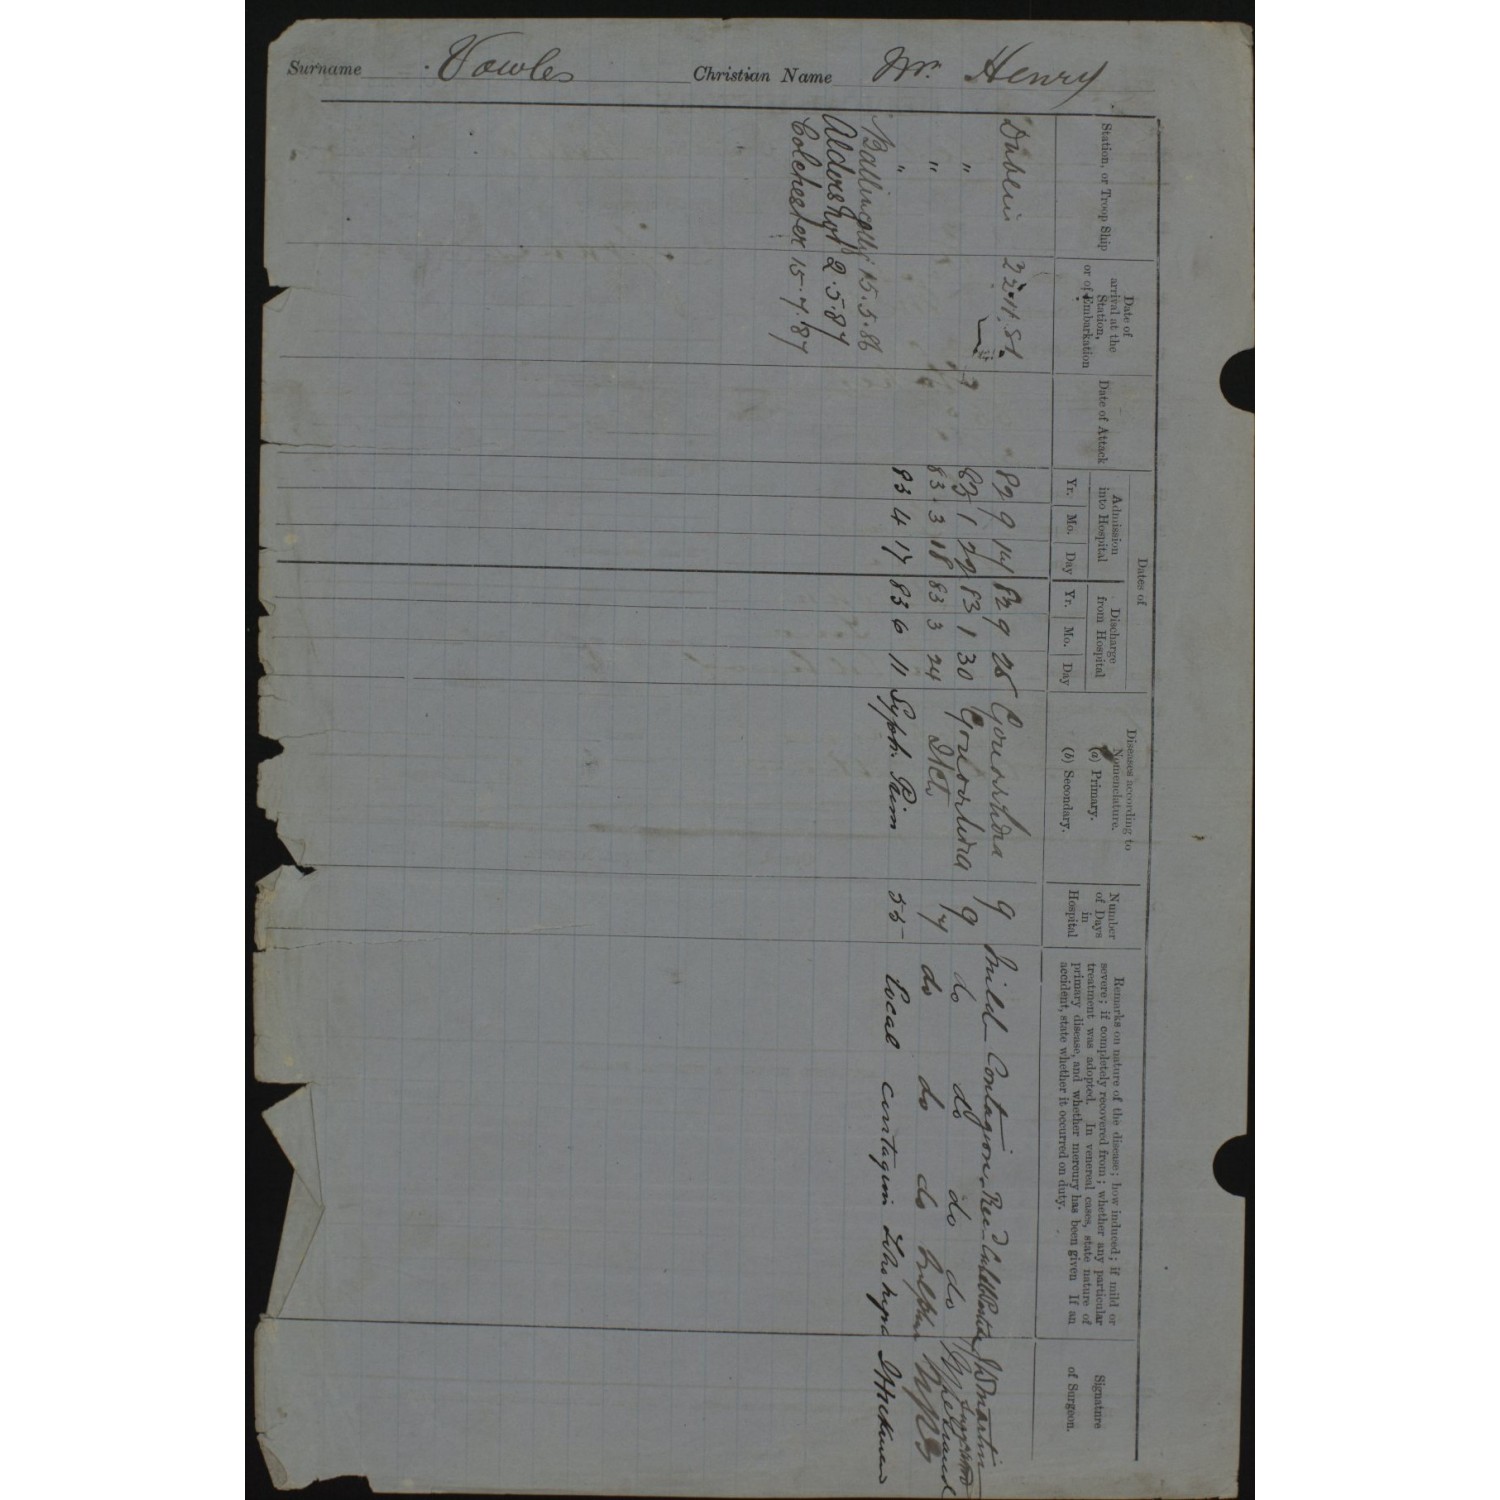 Surname Vowles Christian Name Wm. Henry
Station, or Troop Ship
Date of arrival at the Station, or of Embarkation
Date of Attack
Dates of
Admission into Hospital
Yr. Mo. Day
Discharge from Hospital
Yr. Mo. Day
Diseases according to Nomenclature.
(a) Primary.
(b) Secondary.
Number of Days in Hospital
Remarks on nature of the disease; how induced; if mild or
severe; if completely recovered from; whether any particular
treatment was adopted. In venereal cases, state nature of
primary disease, and whether mercury has been given If an
accident, state whether it occurred on duty.
Signature of Surgeon.
Dublin 82 9 14 82 9 Gonorrhoea 9 Mild Contagion
" 83 1 83 1 30 Gonorrhoea 9 do do do do
" 83 3 18 83 3 24 7 do do do
" 83 4 17 83 6 11 Syph. Prim 55 Local contagion
Ballincollig 15.5.86
Aldershot 2.5.87
Colchester 15.7.87